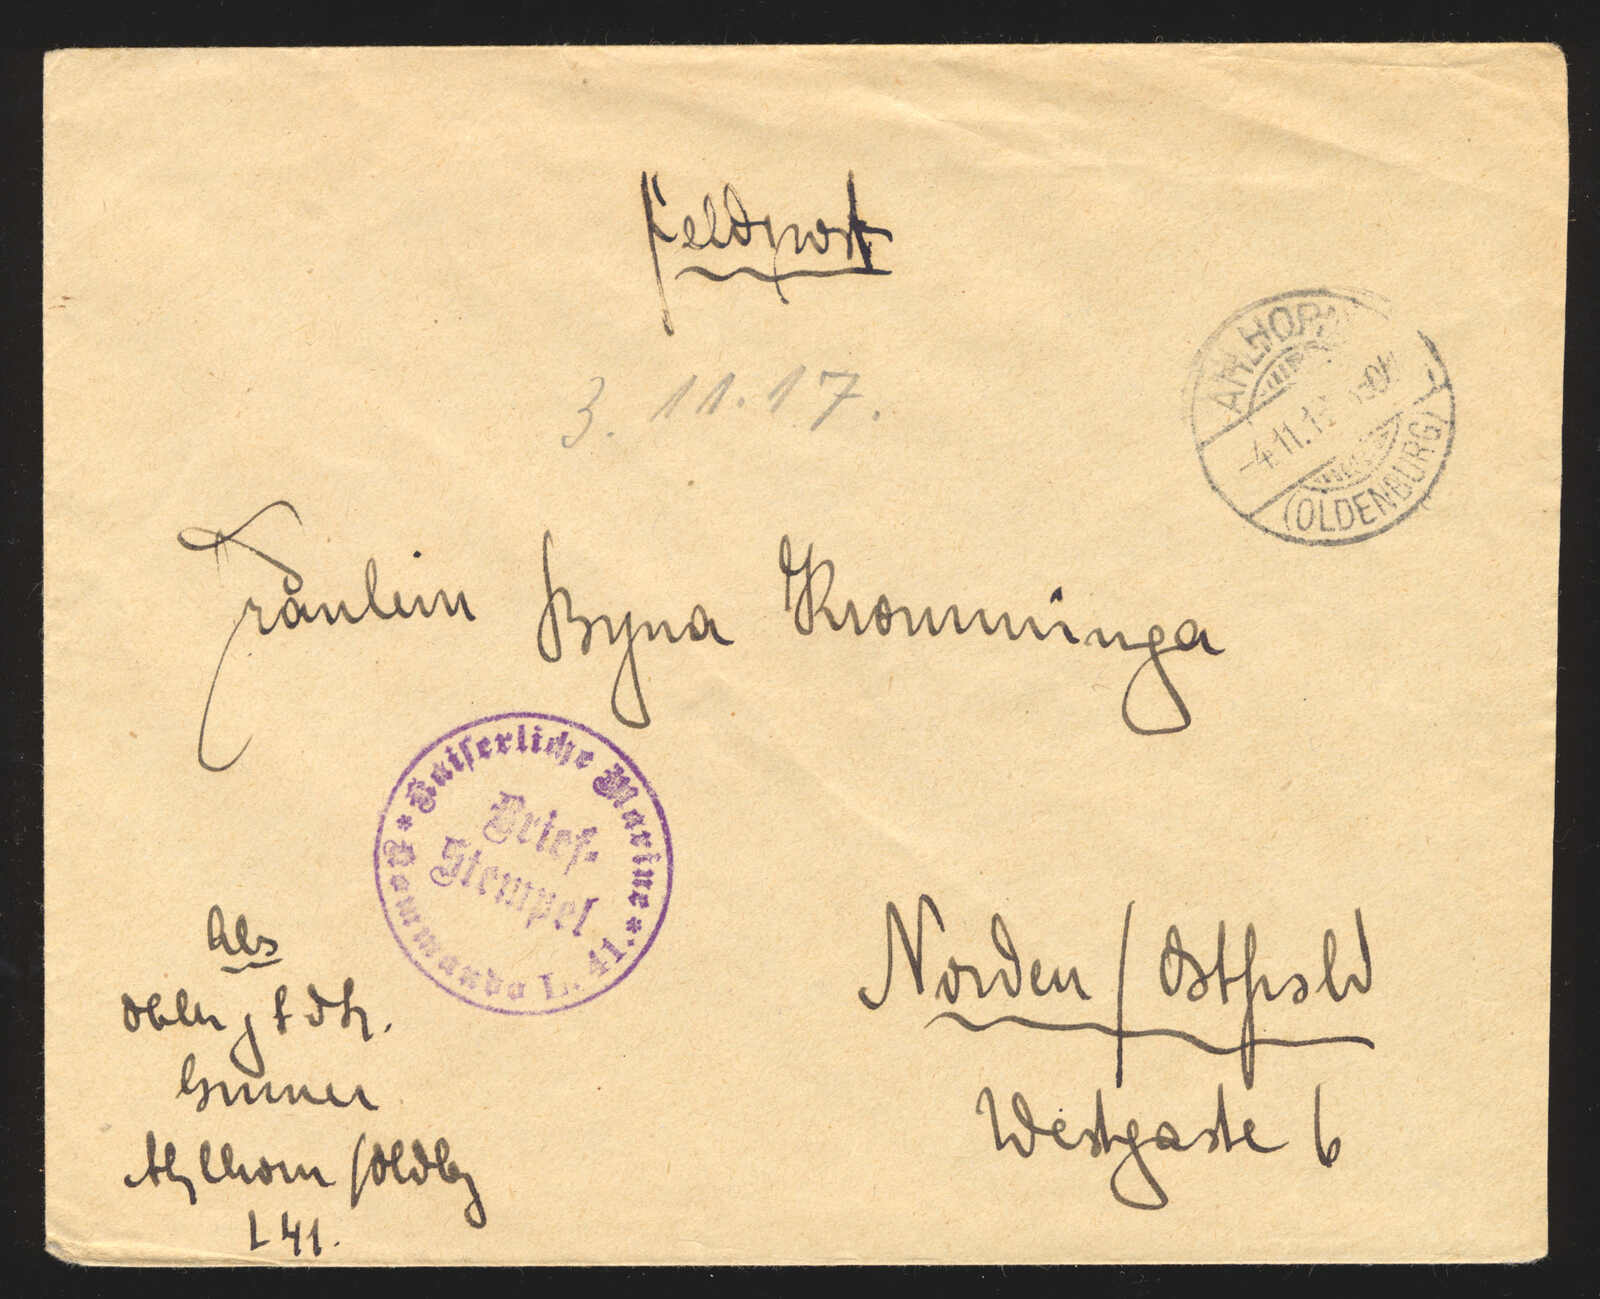 Feldpost
3. 11. 17.
AHLHORN
-4.11.1
(OLDENBURG)
Fräulein Byna Kromminga
* Kaiserliche Marine *
Brief-
Stempel
Commando L. 41.
Norden / Ostfrsld
Westgaste 6
Abs
Ahlhorn /Oldbg
L 41.